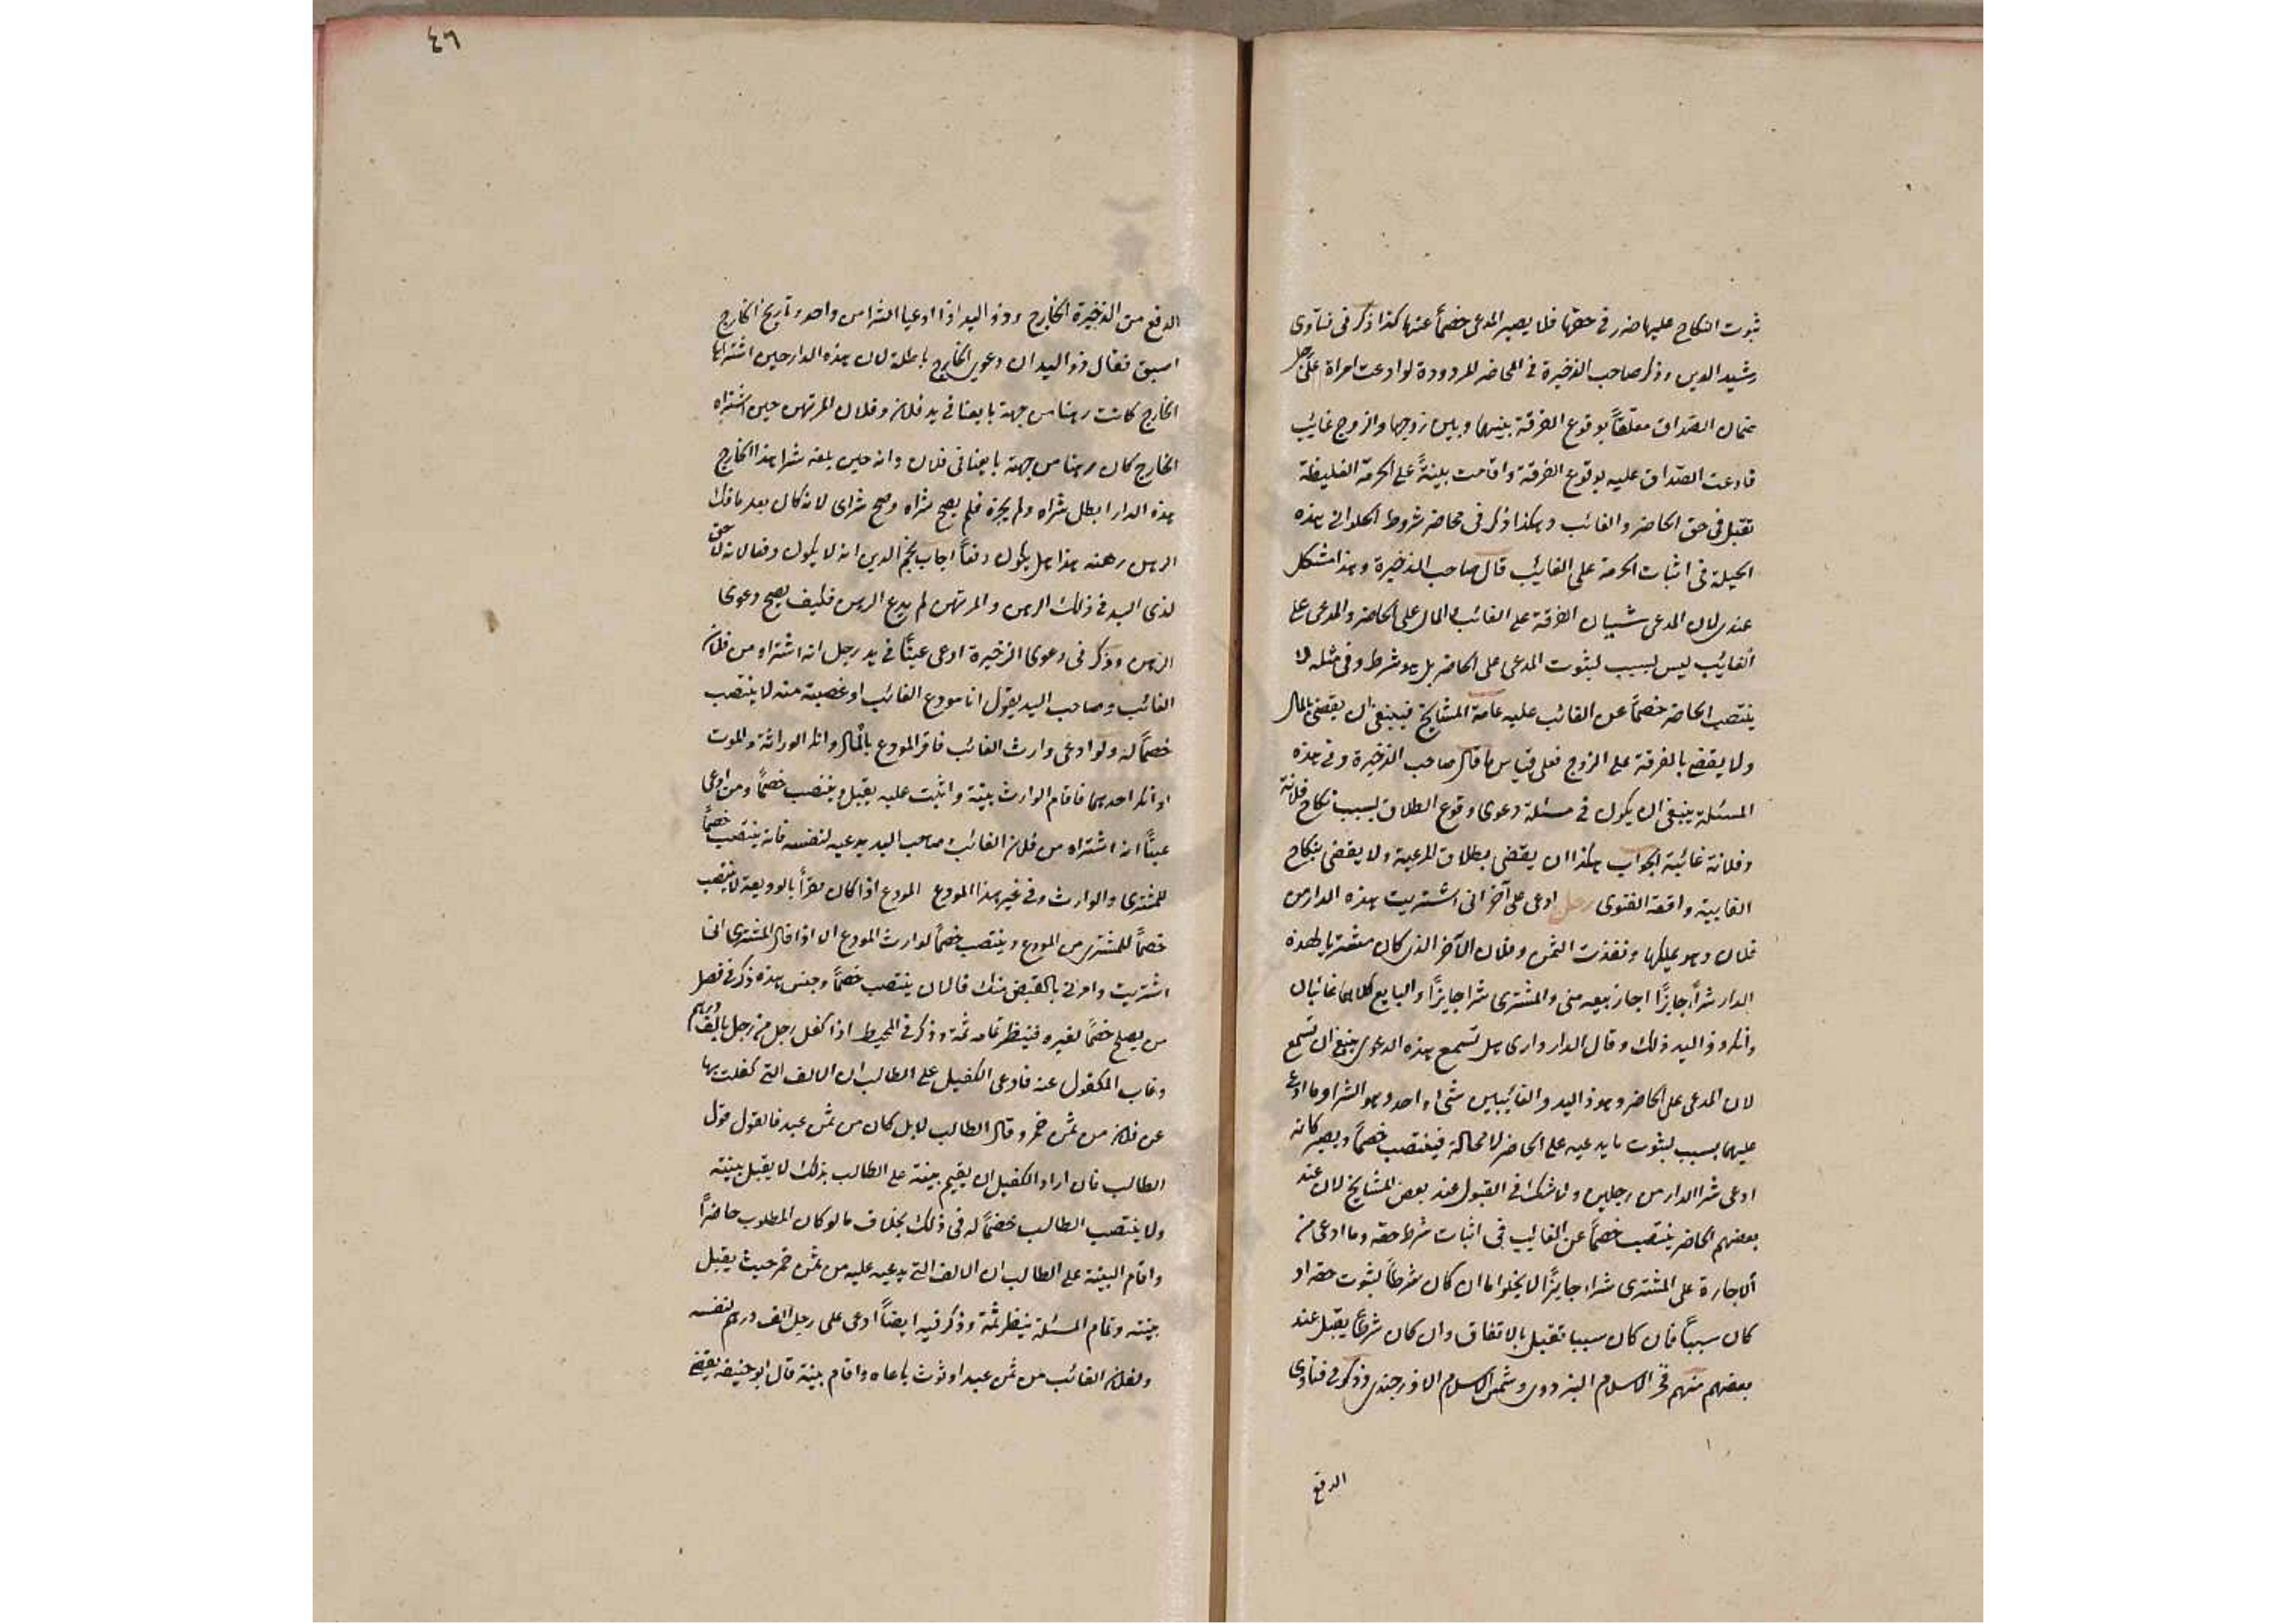 ثبوت النكاح عليها ضرر في حقها فلا يصير المدعى خصماً عنها كذا ذكر في فتاوى
رشيد الدين وذكر صاحب الذخيرة في المحاضر المردودة لو ادعت امراة على رجل
ضمان الصداق معلقاً بوقوع الفرقة بينهما وبين زوجها والزوج غائب
فادعت الصداق عليه بوقوع الفرقة واقامت بينةً على الحرمة الغليظة
تقبل في حق الحاضر والغائب وهكذا ذكر في محاضر شروط الحلواني هذه
الحيلة في اثبات الحرمة على الغايب قال صاحب الذخيرة وهذا مشكل
عندي لان المدعى شيئان الفرقة على الغائب والمال على الحاضر والمدعى على
الغايب ليس بسبب لثبوت المدعى على الحاضر بل هو شرط وفي مثله لا
ينتصب الحاضر خصماً عن الغائب عليه عامة المشايخ فينبغي ان يقضى بالمال
ولا يقضى بالفرقة على الزوج فعلى قياس ما قال صاحب الذخيرة وفي هذه
المسئلة ينبغي ان يكون في مسئلة دعوى وقوع الطلاق بسبب نكاح فلانة
وفلانة غائبة الجواب هكذا ان يقضى بطلاق المدعية ولا يقضى بنكاح
الغايبة واقعة الفتوى رجل ادعى على آخر اني اشتريت هذه الدار من
فلان وهو يملكها ونقدت الثمن وفلان الآخر الذي كان مشتريا لهذه
الدار شراًء جايزًا اجاز بيعه مني والمشترى شرا جايزًا والبايع كلاهما غائبان
وانكر ذو اليد ذلك وقال الدار داري هل تسمع هذه الدعوى ينبغي ان تسمع
لان المدعى على الحاضر وهو ذو اليد والغائيبين شئ واحد وهو الشرا وما ادعى
عليهما بسبب لثبوت ما يدعيه على الحاضر لا محالة فينتصب خصماً ويصير كانه
ادعى شرا الدار من رجلين ولا شك في القبول عند بعض المشايخ لان عند
بعضهم الحاضر ينتصب خصماً عن الغايب في اثبات شرط حقه وما ادعى من
الاجازة على المشترى شراء جايزًا لا يخلوا اما ان كان شرطاً لثبوت حقه او
كان سبباً فان كان سببا تقبل بالاتفاق وان كان شرطاً يقبل عند
بعضهم منهم فخر الاسلام البزدوي وشمس الاسلام الاوزجندي وذكر في فتاوى
الدفع
٤٦
الدفع من الذخيرة الخارج وذو اليد اذا ادعيا الشرا من واحد وتاريخ الخارج
اسبق فقال ذو اليد ان دعوى الخارج باطلة لان هذه الدار حين اشتراها
الخارج كانت رهنا من جهة بايعنا في يد فلان وفلان المرتهن حين اشتراه
الخارج كان رهنا من جهة بايعنا في فلان وانه حين بلغه شرا هذا الخارج
هذه الدار ابطل شراه ولم يجزه فلم يصح شراه وصح شراى لانه كان بعد ما فك
الرهن رهنه هذا هل يكون دفعاً اجاب نجم الدين انه لا يكون دفعا لانه لا حق
لذى اليد في ذلك الرهن والمرتهن لم يدع الرهن فكيف يصح دعوى
الرهن وذكر في دعوى الذخيرة ادعى عيناً في يد رجل انه اشتراه من فلان
الغائب وصاحب اليد يقول انا مودع الغائب او غصبته منه لا ينتصب
خصماً له ولو ادعى وارث الغائب فاقر المودع بالمال وانكر الوراثة والموت
او انكر احدهما فاقام الوارث بينة واثبت عليه يقبل وينتصب خصماً ومن ادعى
عيناً انه اشتراه من فلان الغائب صاحب اليد يدعيه لنفسه فانه ينتصب خصماً
للمشترى والوارث وفي غير هذا المودع المودع اذا كان مقراً بالوديعة لا ينتصب
خصماً للمشترى من المودع وينتصب خصماً لوارث المودع الا اذا قال المشترى انى
اشتريت وامرني بالقبض منك فالان ينتصب خصماً وجنس هذه ذكر في فصل
من يصلح خصماً لغيره فينظر تمامه ثمة وذكر في المحيط اذا كفل رجل من رجل بالف درهم
وغاب المكفول عنه فادعى الكفيل على الطالب ان الالف التي كفلت بها
عن فلان من ثمن خمر وقال الطالب لا بل كان من ثمن عبد فالقول قول
الطالب فان اراد الكفيل ان يقيم بينة على الطالب بذلك لا يقبل بينته
ولا ينتصب الطالب خصماً له في ذلك بخلاف ما لو كان المطلوب حاضراً
واقام البينة على الطالب ان الالف التي يدعيه عليه من ثمن خمر حيث يقبل
بينته وتمام المسئلة ينظر ثمة وذكر فيه ايضاً ادعى على رجل الف درهم لنفسه
ولفلان الغائب من ثمن عبد او ثوب باعاه واقام بينة قال ابو حنيفة يقضى